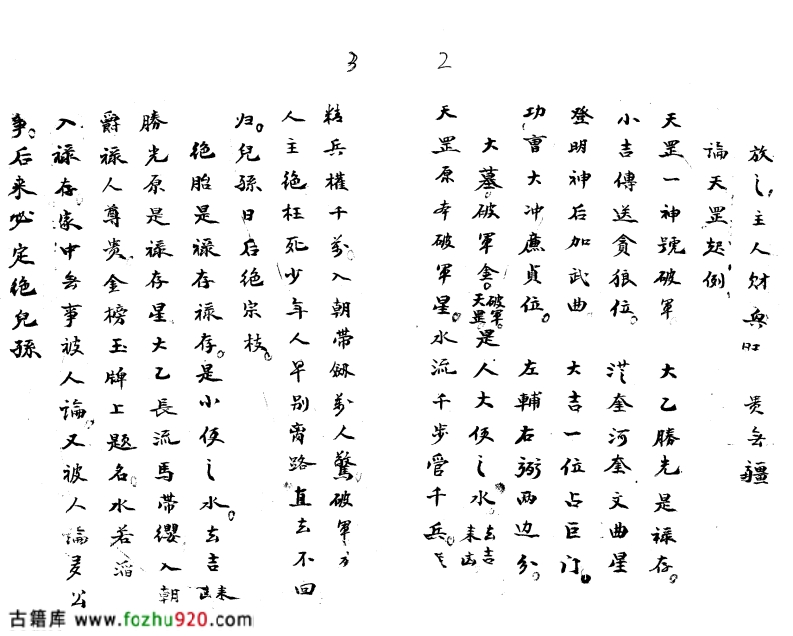 2
放之。主人财興旺 贵无疆
論天罡起例
天罡一神號破軍 大乙勝光是禄存。
小吉傳送貪狼位。 从奎河奎文曲星
登明神后加武曲 大吉一位占巨门。
功曹大冲廉貞位。 左輔右弼兩边分。
大墓。破軍金。破軍。天罡。是人大便之水。去吉来凶
天罡原本破軍星。水流千步管千兵。
3
精兵權千萬入朝帶劍萬人驚破軍方
人主絶枉死少年人早别离路直去不回
归。兒孫日后绝宗枝。
绝胎是禄存禄存。是小便之水。去吉来凶
勝光原是禄存星大乙長流馬帶缨入朝
爵禄人尊贵金榜玉牌上题名水若
入禄存。家中无事被人論。又被人論多公
事。后来必定绝兒孫
古籍库 www.fozhu920.com